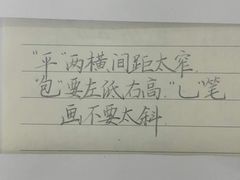 "平"两横间距太窄.
"包"要左低右高."乚"笔
画不要太斜